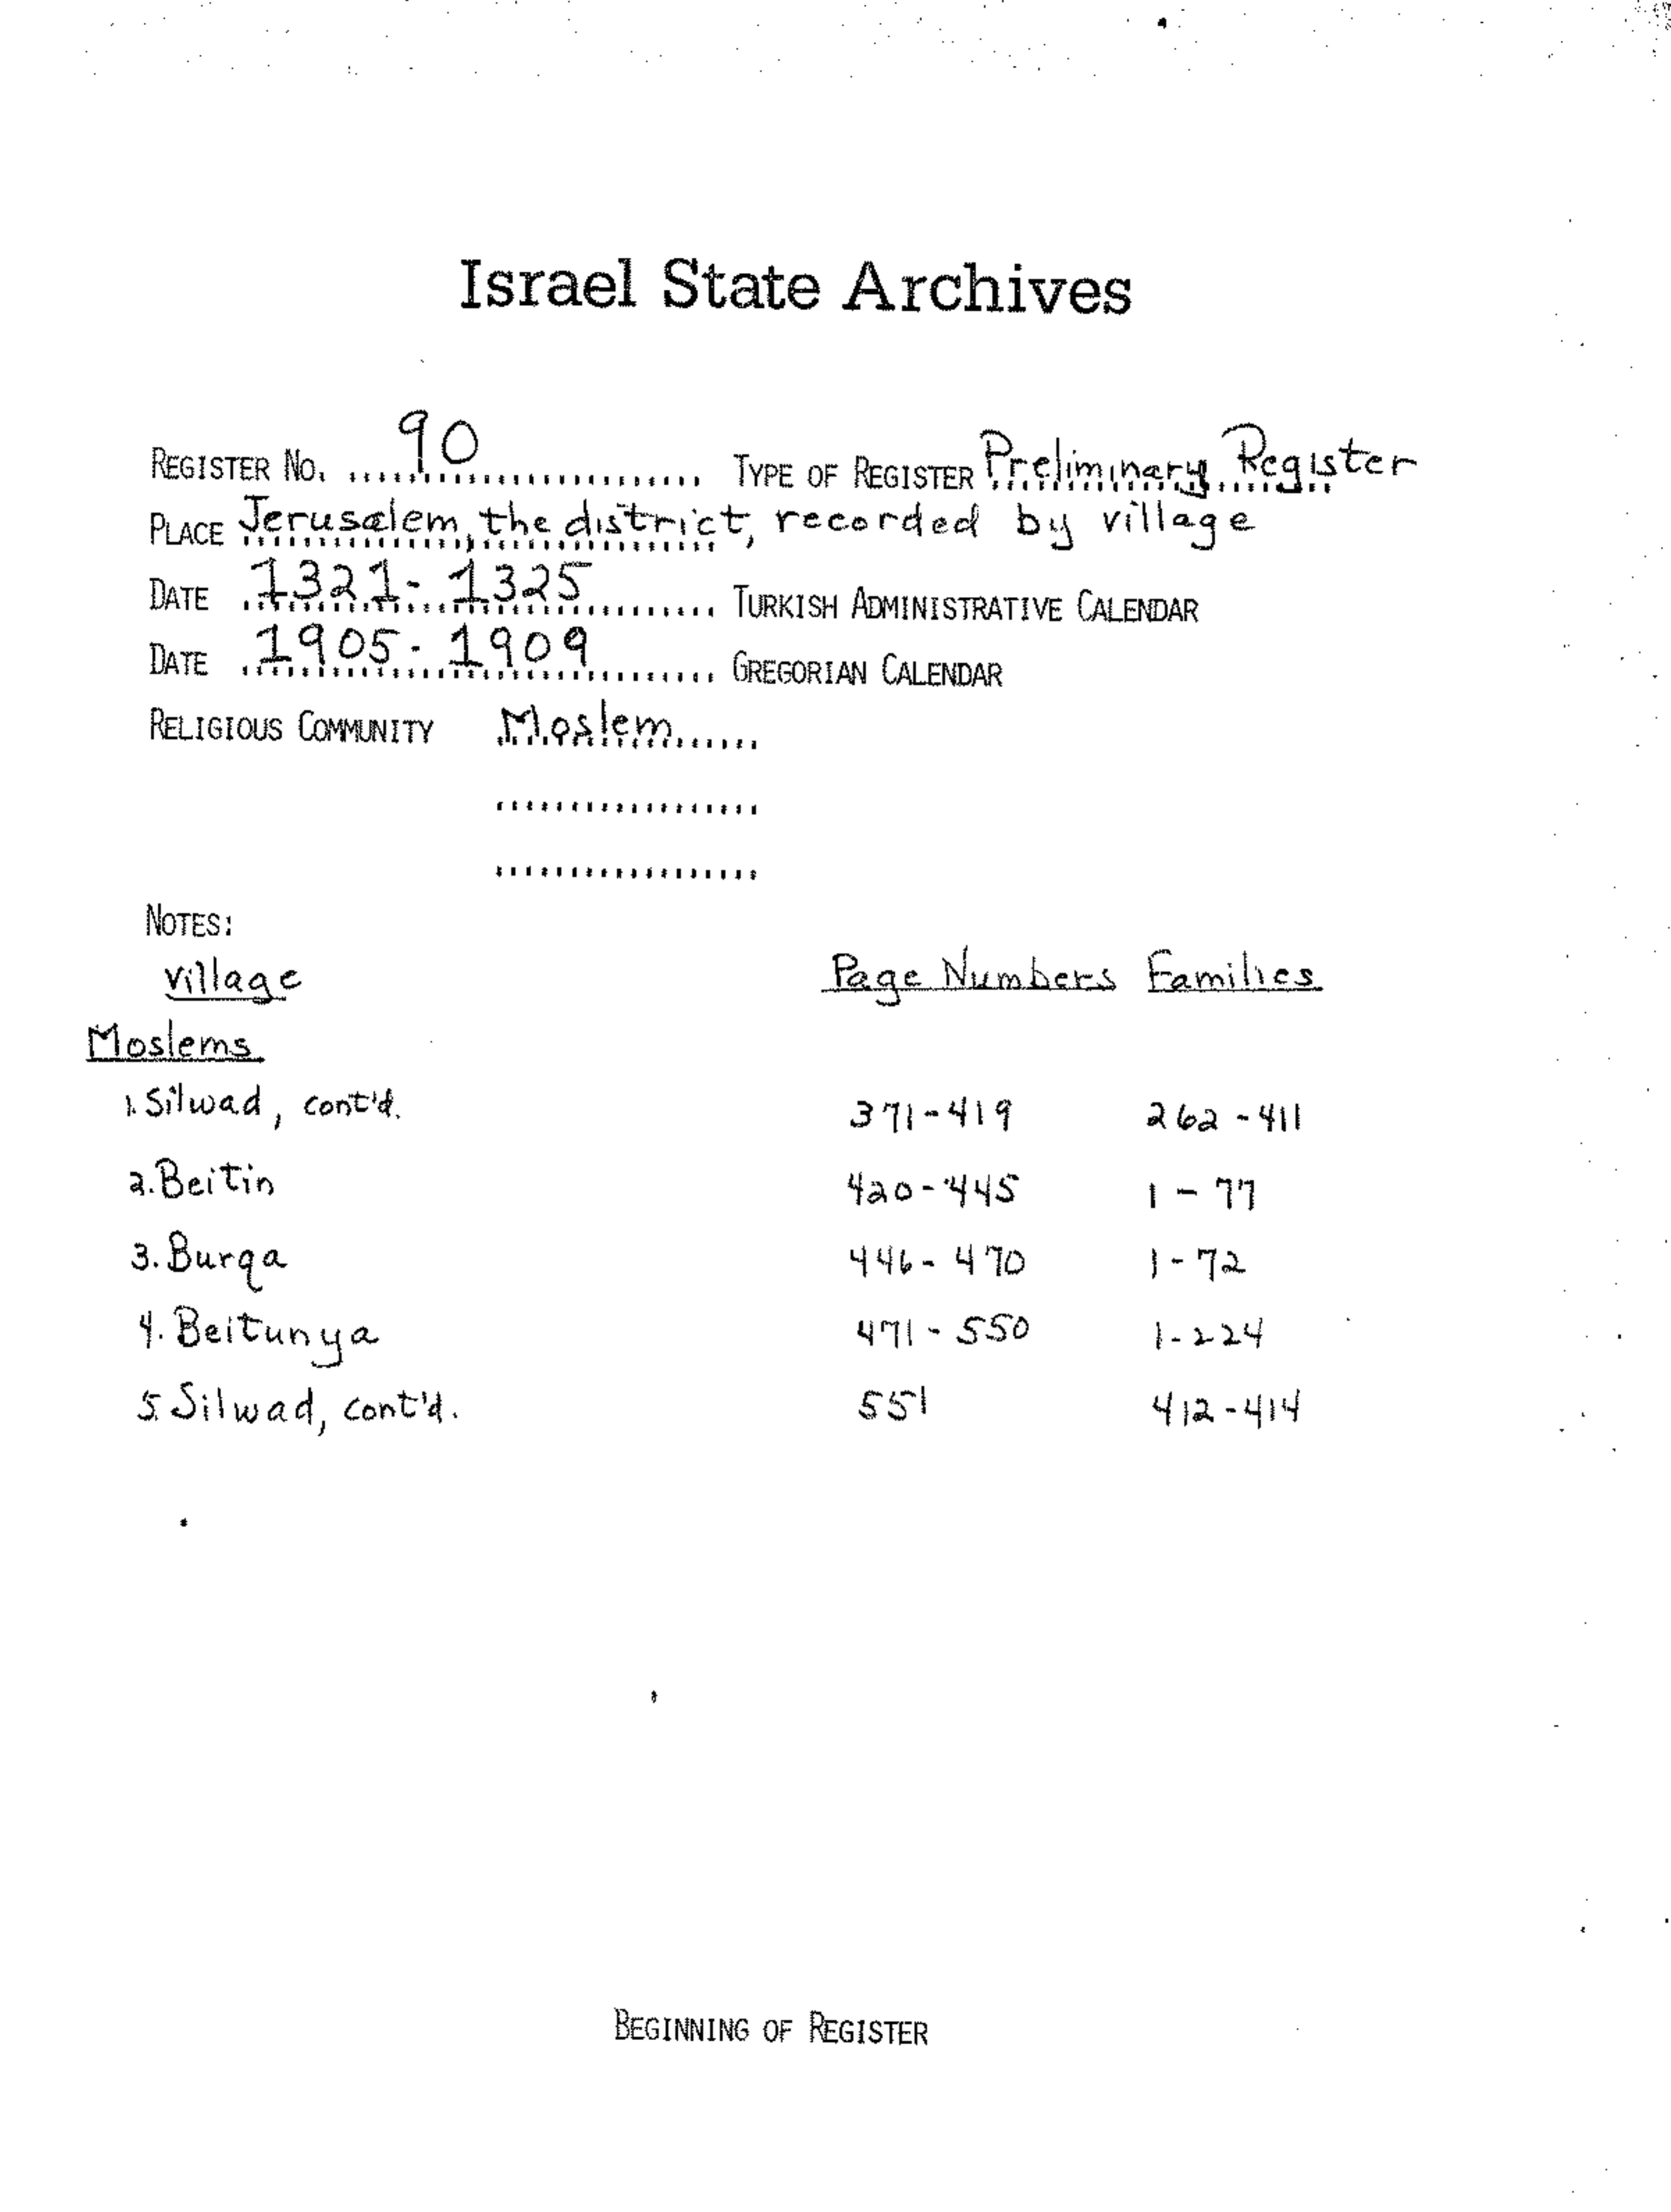 Israel State Archives
REGISTER NO. 90 TYPE OF REGISTER Preliminary Register
PLACE Jerusalem, the district, recorded by village
DATE 1321-1325 TURKISH ADMINISTRATIVE CALENDAR
DATE 1905-1909 GREGORIAN CALENDAR
RELIGIOUS COMMUNITY Moslem
NOTES:
Village Page Numbers Families
Moslems
1. Silwad, cont'd. 371-419 262-411
2. Beitin 420-445 1-77
3. Burqa 446-470 1-72
4. Beitunya 471-550 1-224
5. Silwad, cont'd. 551 412-414
BEGINNING OF REGISTER